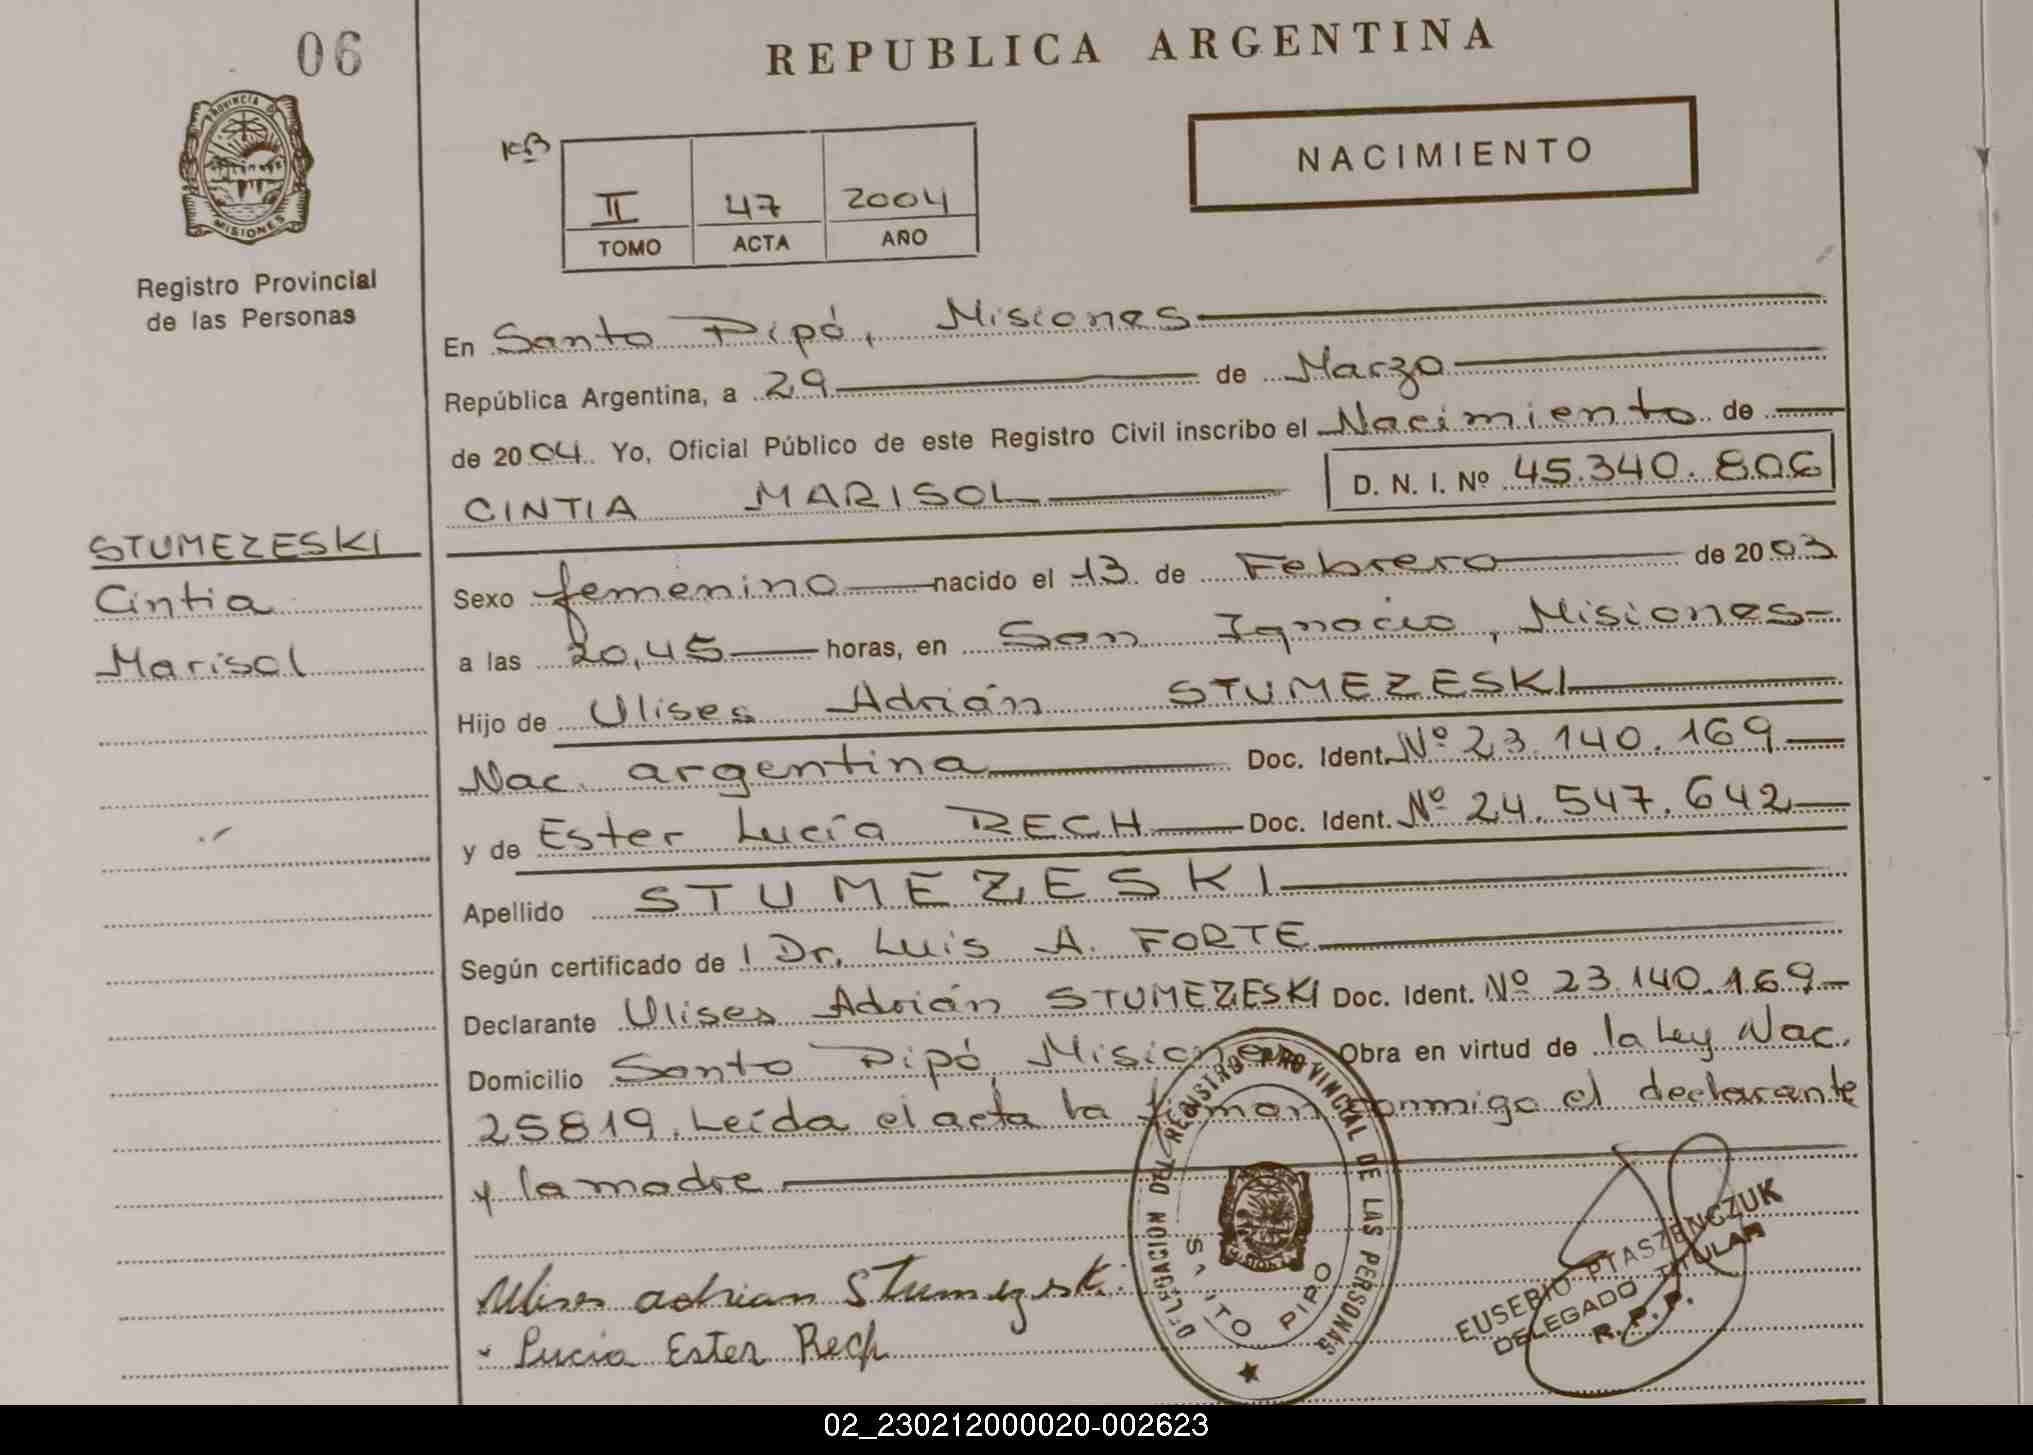 06
REPUBLICA ARGENTINA
PROVINCIA DE
MISIONES
Registro Provincial
de las Personas
II 47 2004
TOMO ACTA AÑO
NACIMIENTO
En Santo Pipó, Misiones
República Argentina, a 29 de Marzo
de 2004. Yo, Oficial Público de este Registro Civil inscribo el Nacimiento de
CINTIA MARISOL D. N. I. Nº 45.340.806
STUMEZESKI
Cintia
Marisol
Sexo femenino nacido el 13 de Febrero de 2003
a las 20,45 horas, en San Ignacio, Misiones
Hijo de Ulises Adrián STUMEZESKI
Nac. argentina Doc. Ident. Nº 23.140.169
y de Ester Lucía RECH Doc. Ident. Nº 24.547.642
Apellido STUMEZESKI
Según certificado de Dr. Luis A. FORTE
Declarante Ulises Adrián STUMEZESKI Doc. Ident. Nº 23.140.169
Domicilio Santo Pipó, Misiones Obra en virtud de la Ley Nac.
25819. Leída el acta la firman conmigo el declarante
y la madre
Ulises adrian Stumezeski
Lucia Ester Rech
DELEGACION DEL REGISTRO PROVINCIAL DE LAS PERSONAS
SANTO PIPO
EUSEBIO PTASZENCZUK
DELEGADO TITULAR
R. P. P.
02_230212000020-002623